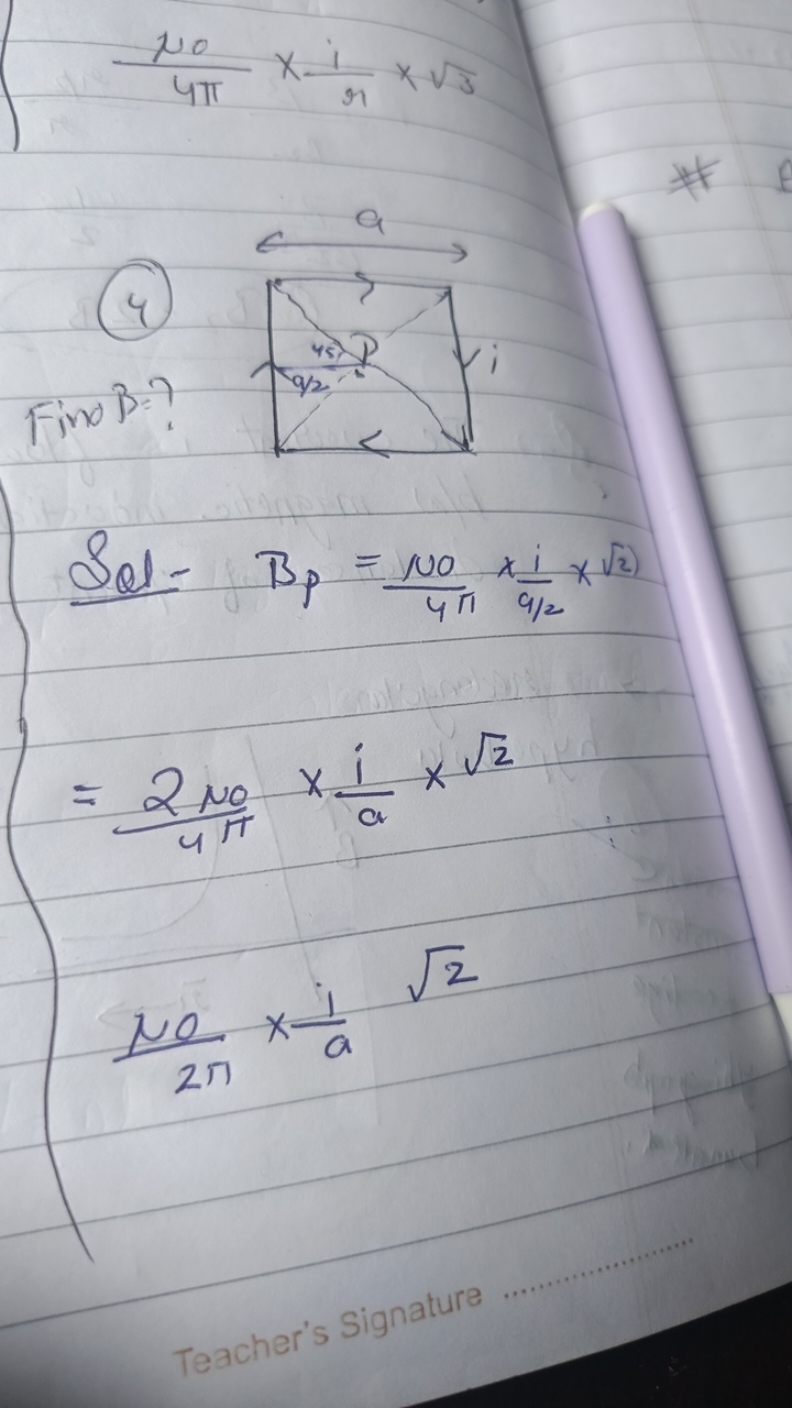 μ0/4π × i/r × √3
#
a
4
45° P
i
a/2
Find B=?
Sol- Bp = μ0/4π × i/a/2 × √2)
= 2μ0/4π × i/a × √2
μ0/2π × i/a √2
Teacher's Signature ........................